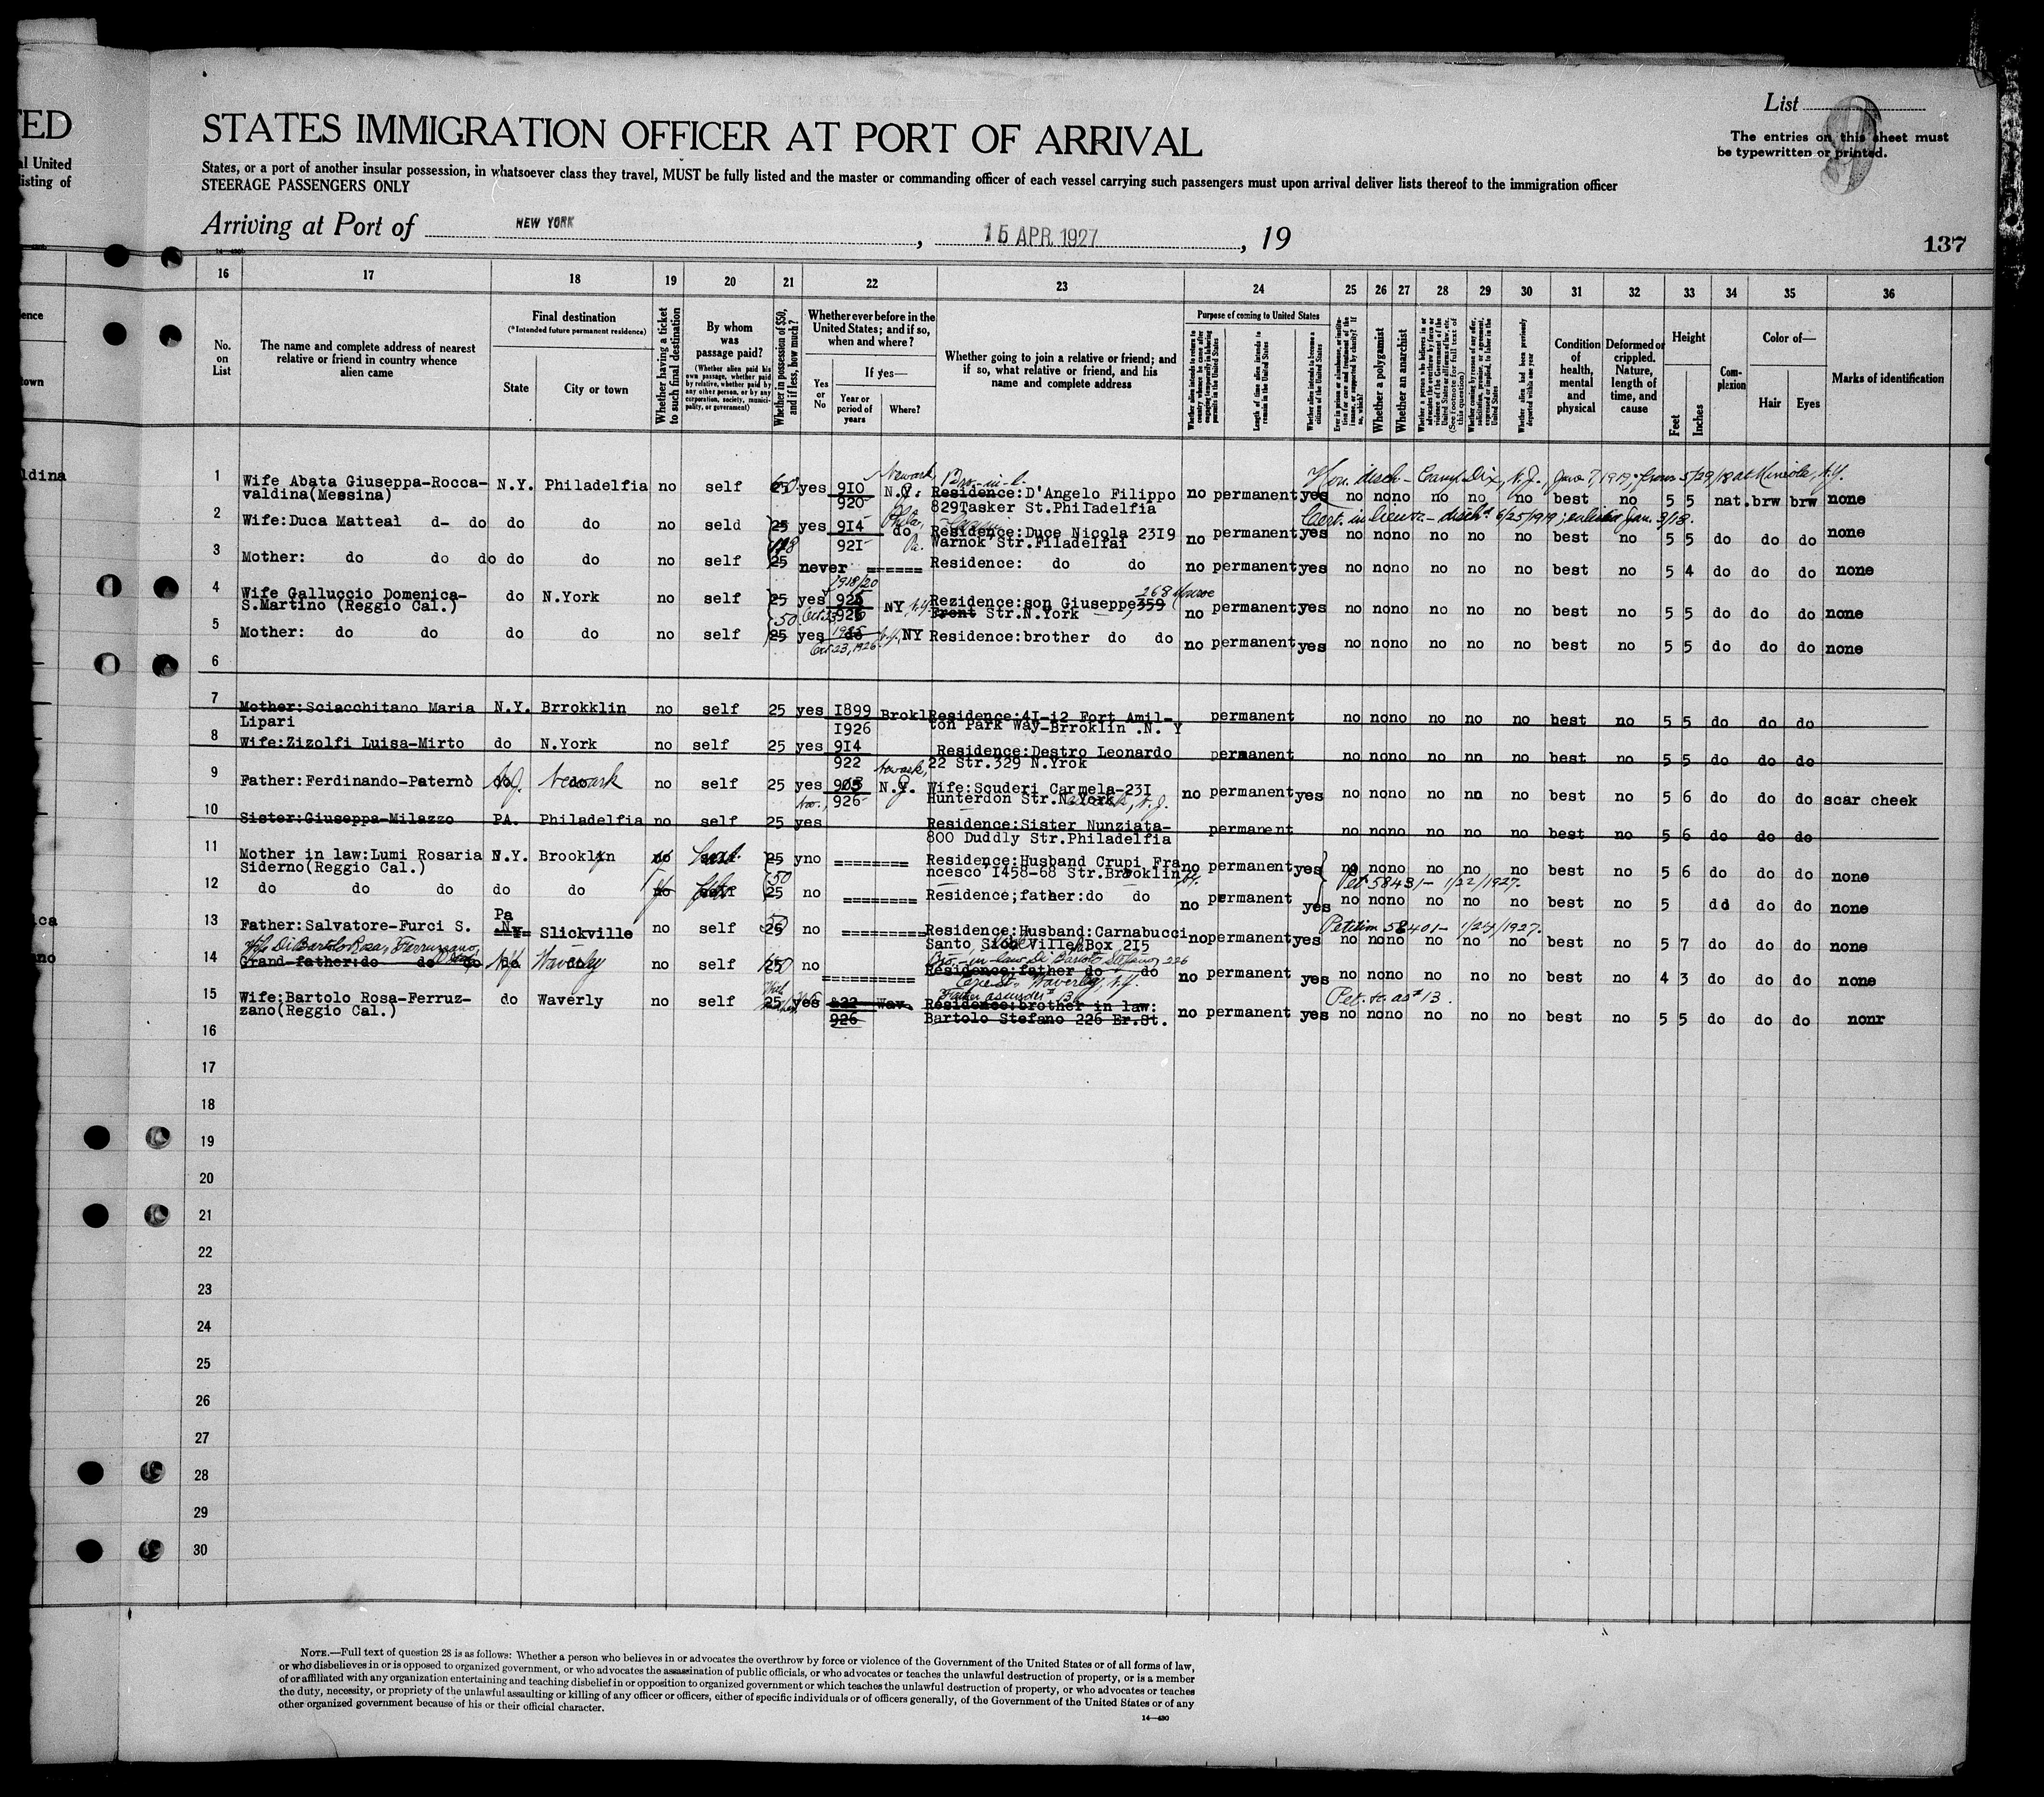 TED
al United
listing of
List
9
The entries on this sheet must
be typewritten or printed.
STATES IMMIGRATION OFFICER AT PORT OF ARRIVAL
States, or a port of another insular possession, in whatsoever class they travel, MUST be fully listed and the master or commanding officer of each vessel carrying such passengers must upon arrival deliver lists thereof to the immigration officer
STEERAGE PASSENGERS ONLY
Arriving at Port of NEW YORK , 15 APR 1927 , 19
137
16 17 18 19 20 21 22 23 24 25 26 27 28 29 30 31 32 33 34 35 36
No. on List
The name and complete address of nearest relative or friend in country whence alien came
Final destination
(*Intended future permanent residence)
State
City or town
Whether having a ticket to such final destination
By whom was passage paid?
(Whether alien paid his own passage, whether paid by relative, whether paid by any other person, or by any corporation, society, municipality, or government)
Whether in possession of $50, and if less, how much?
Whether ever before in the United States; and if so, when and where?
Yes or No
If yes—
Year or period of years
Where?
Whether going to join a relative or friend; and if so, what relative or friend, and his name and complete address
Purpose of coming to United States
Length of time alien intends to remain in the United States
Whether alien intends to become a citizen of the United States
Whether a polygamist
Whether an anarchist
Condition of health, mental and physical
Deformed or crippled. Nature, length of time, and cause
Height
Feet
Inches
Complexion
Color of—
Hair
Eyes
Marks of identification
Hon. disch - Camp Dix, N.J., June 7, 1919; from 5/29/18 at Mineola, N.Y.
1 Wife Abata Giuseppa-Roccavaldina(Messina) N.Y. Philadelfia no self 25 yes 910 920 Newark, N.J. Bro-in-l. Residence:D'Angelo Filippo 829Tasker St.Philadelfia no permanent yes no no no no no no best no 5 5 nat. brw brw none
Cert. in lieu - disch. 6/25/1919; enlisted Jan. 3/18.
2 Wife:Duca Matteal d- do do do no seld 25 yes 914 921 do Phila, Pa. Residence:Duce Nicola 2319 Warnok Str.Filadelfai no permanent yes no no no no no no best no 5 5 do do do none
3 Mother: do do do do do no self 25 never ====== Residence: do do no permanent yes no no no no no no best no 5 4 do do do none
4 Wife Galluccio Domenica-S.Martino (Reggio Cal.) do N.York no self 25 yes 1918/20 925 926 NY Rezidence:son Giuseppe 359 268 Monroe Front Str.N.York no permanent yes no no no no no no best no 5 5 do do do none
5 Mother: do do do do no self 25 50 yes do 1925 Oct 23, 1926 NY Residence:brother do do no permanent yes no no no no no no best no 5 5 do do do none
6
7 Mother:Sciacchitano Maria Lipari N.Y. Brrokklin no self 25 yes 1899 1926 Brokl Residence:41-12 Fort Amilton Park Way-Brroklin .N. Y permanent no no no no no no best no 5 5 do do do
8 Wife:Zizolfi Luisa-Mirto do N.York no self 25 yes 914 922 Residence:Destro Leonardo 22 Str.329 N.Yrok permanent no no no no no no best no 5 5 do do do
9 Father:Ferdinando-Paternò do N.J. Newark no self 25 yes 903 926 Newark, N.J. Wife:Scuderi Carmela-231 Hunterdon Str.N.York, N.J. no permanent yes no no no no no no best no 5 6 do do do scar cheek
10 Sister:Giuseppa-Milazzo PA. Philadelfia no self 25 yes Residence:Sister Nunziata-800 Duddly Str.Philadelfia permanent no no no no no no best no 5 6 do do do
11 Mother in law:Lumi Rosaria Siderno(Reggio Cal.) N.Y. Brooklyn no 25 yno ======== Residence:Husband Crupi Francesco 1458-68 Str.Brooklin no permanent yes no no no no no no best no 5 6 do do do none
Pet. 58431- 1/22/1927.
12 do do do do do no self 25 50 no ======== Residence;father:do do no permanent yes no no no no no no best no 5 dd do do none
13 Father:Salvatore-Furci S. Pa N.Y. Slickville no self 25 50 no Residence:Husband:Carnabucci Santo Slick Ville Box 215 no permanent yes no no no no no no best no 5 7 do do do none
Petition 58401- 1/24/1927.
Wife DiBartolo Rosa, Ferruzzano,
14 Grand-father:do do do N.Y. Waverly no self 25 50 no ======== Residence:father do do Bro.-in-law Di Bartolo Stefano, 226 Waverly, N.Y. no permanent yes no no no no no no best no 4 3 do do do none
15 Wife:Bartolo Rosa-Ferruzzano(Reggio Cal.) do Waverly no self 25 yes 922 926 Wav. Residence:brother in law: Bartolo Stefano 226 Er.St. no permanent yes no no no no no no best no 5 5 do do do nonr
Pet. to. as #13.
16
17
18
19
20
21
22
23
24
25
26
27
28
29
30
NOTE.—Full text of question 28 is as follows: Whether a person who believes in or advocates the overthrow by force or violence of the Government of the United States or of all forms of law,
or who disbelieves in or is opposed to organized government, or who advocates the assassination of public officials, or who advocates or teaches the unlawful destruction of property, or is a member
of or affiliated with any organization entertaining and teaching disbelief in or opposition to organized government or which teaches the unlawful destruction of property, or who advocates or teaches
the duty, necessity, or propriety of the unlawful assaulting or killing of any officer or officers, either of specific individuals or of officers generally, of the Government of the United States or of any
other organized government because of his or their official character.
14—430